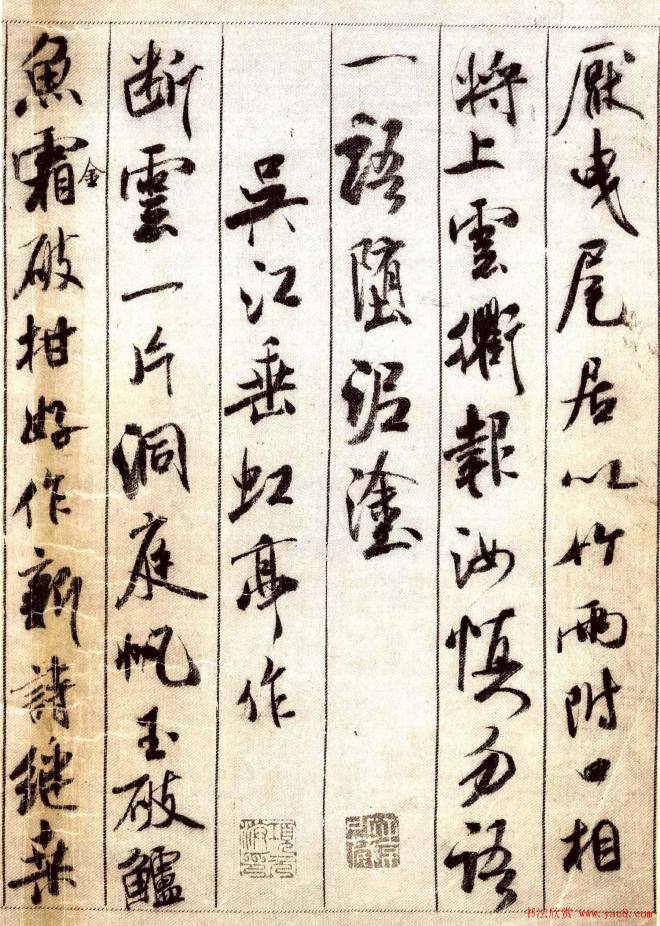 厭曳尾居以竹兩附口相
將上雲衢報汝慎勿語
一語墮泥塗
吳江垂虹亭作
断雲一片洞庭帆玉破鱸
魚霜金破柑好作新詩継桒
书法欣赏 www.yac8.com